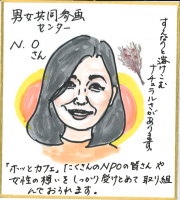 男女共同参画
センター
N.O
さん
すんなりと溶けこむ
ナチュラルさがあります。
「ホッとカフェ」にたくさんのNPOの皆さんや
女性の想いをしっかり受けとめて取り組
んでおられます。